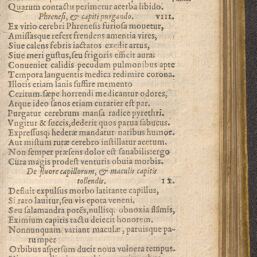 Quarum contactu perimetur acerba libido.
Phrenesi, & capiti purgando. VIII.
Ex vitio cerebri Phrenesis furiosa mouetur,
Amissasque refert frendens amentia vires,
Siue calens febris iactatos exedit artus,
Siue meri gustus, seu frigoris efficit aura:
Conueniet calidis pecudum pulmonibus apte
Tempora languentis medica redimire corona.
Illotis etiam lanis suffire memento
Ceritum: sæpe horrendi medicantur odores,
Atque ideo sanos etiam curarier est par.
Purgatur cerebrum mansa radice pyrethri.
Vngitur & succis, dederit quos parua sabucus.
Expressusq; hederæ mandatur naribus humor.
Aut mulium rutæ cerebro instillatur acetum.
Non semper præsens dolor est sanabilis: ergo
Cura magis prodest venturis obuia morbis.
De fluore capillorum, & maculis capitis
tollendis. IX.
Defluit expulsus morbo latitante capillus,
Si raro lauitur, seu vis epota veneni.
Seu salamandra potēs, nullisq; obnoxia flāmis,
Eximium capitis tactu deiecit honorem.
Nonnunquam variant maculæ, paruisque pa-
rumper
Orbibus aspersum ducit noua vulnera tempus.